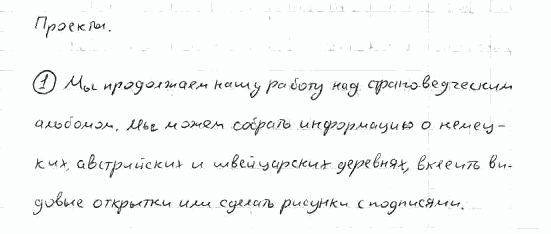 Проекты.
① Мы продолжаем нашу работу над страноведческим
альбомом. Мы можем собрать информацию о немец-
ких, австрийских и швейцарских деревнях, вклеить ви-
довые открытки или сделать рисунки с подписями.